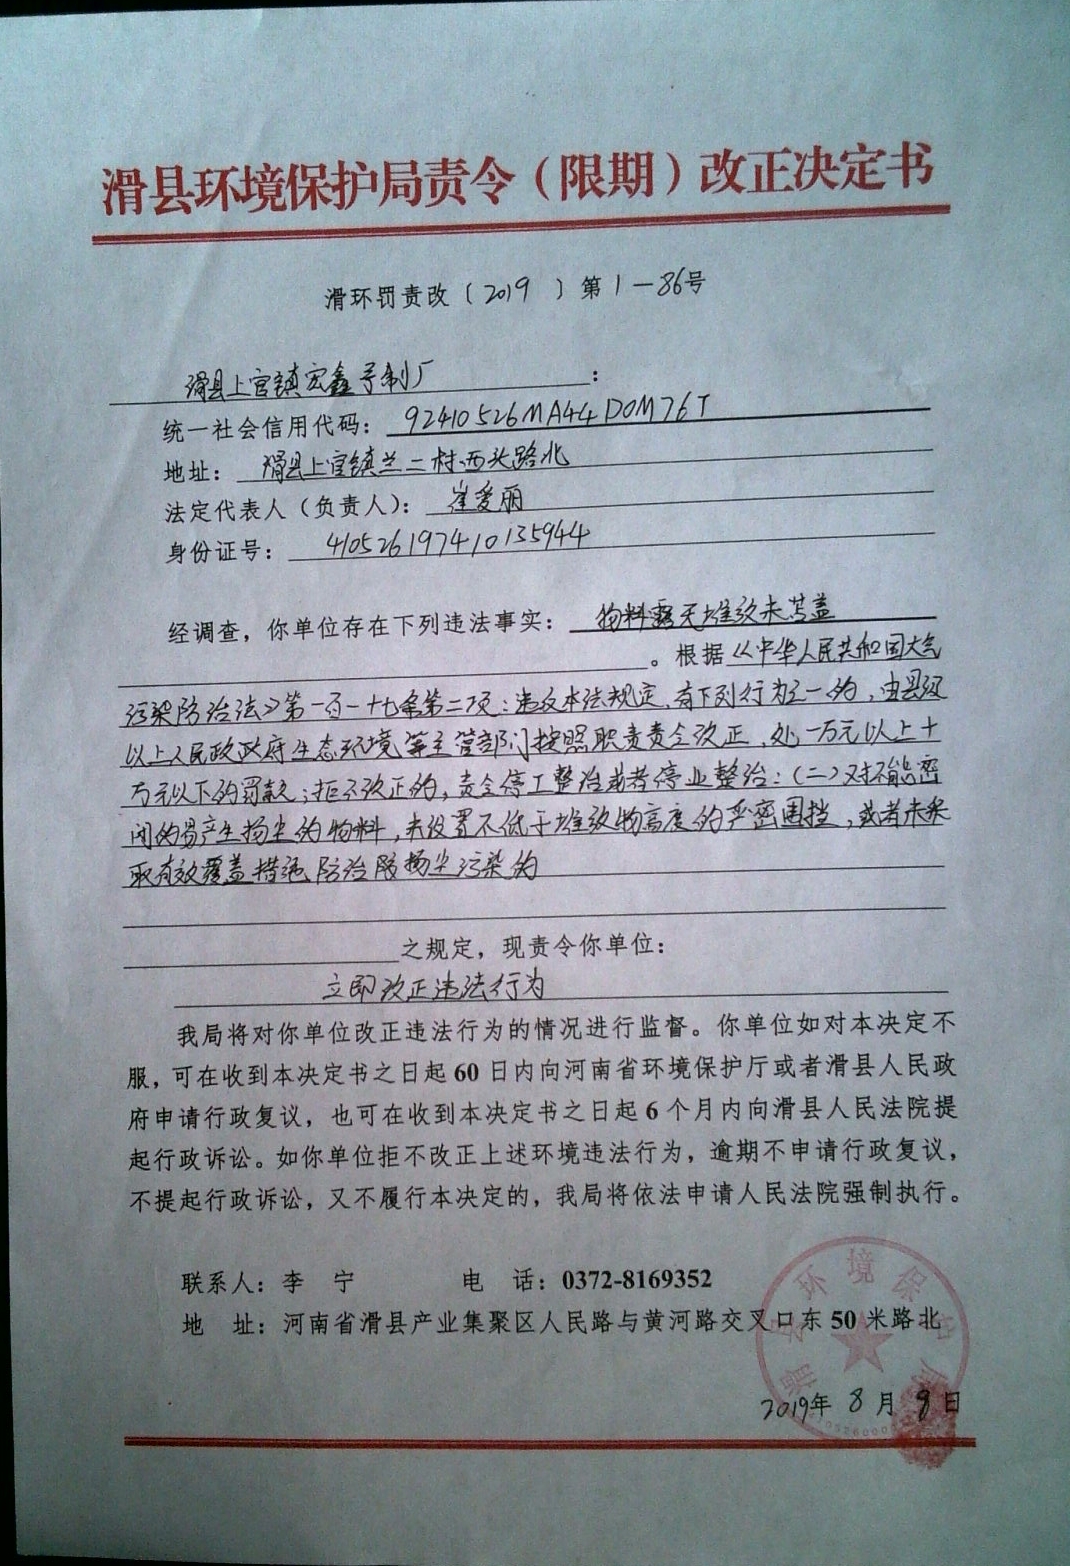 滑县环境保护局责令（限期）改正决定书
滑环罚责改〔2019 〕第1-86号
滑县上官镇宏鑫予制厂：
统一社会信用代码：92410526MA44D0M76T
地址：滑县上官镇兰二村西头路北
法定代表人（负责人）：崔爱丽
身份证号：410526197410135944
经调查，你单位存在下列违法事实：物料露天堆放未苫盖
。根据《中华人民共和国大气
污染防治法》第一百一十七条第二项：违反本法规定，有下列行为之一的，由县级
以上人民政政府生态环境等主管部门按照职责责令改正，处一万元以上十
万元以下的罚款；拒不改正的，责令停工整治或者停业整治：（二）对不能密
闭的易产生扬尘的物料，未设置不低于堆放物高度的严密围挡，或者未采
取有效覆盖措施防治防扬尘污染的
之规定，现责令你单位：
立即改正违法行为
我局将对你单位改正违法行为的情况进行监督。你单位如对本决定不
服，可在收到本决定书之日起60日内向河南省环境保护厅或者滑县人民政
府申请行政复议，也可在收到本决定书之日起6个月内向滑县人民法院提
起行政诉讼。如你单位拒不改正上述环境违法行为，逾期不申请行政复议，
不提起行政诉讼，又不履行本决定的，我局将依法申请人民法院强制执行。
联系人：李 宁 电 话：0372-8169352
地 址：河南省滑县产业集聚区人民路与黄河路交叉口东50米路北
滑县环境保护局
2019年8月9日